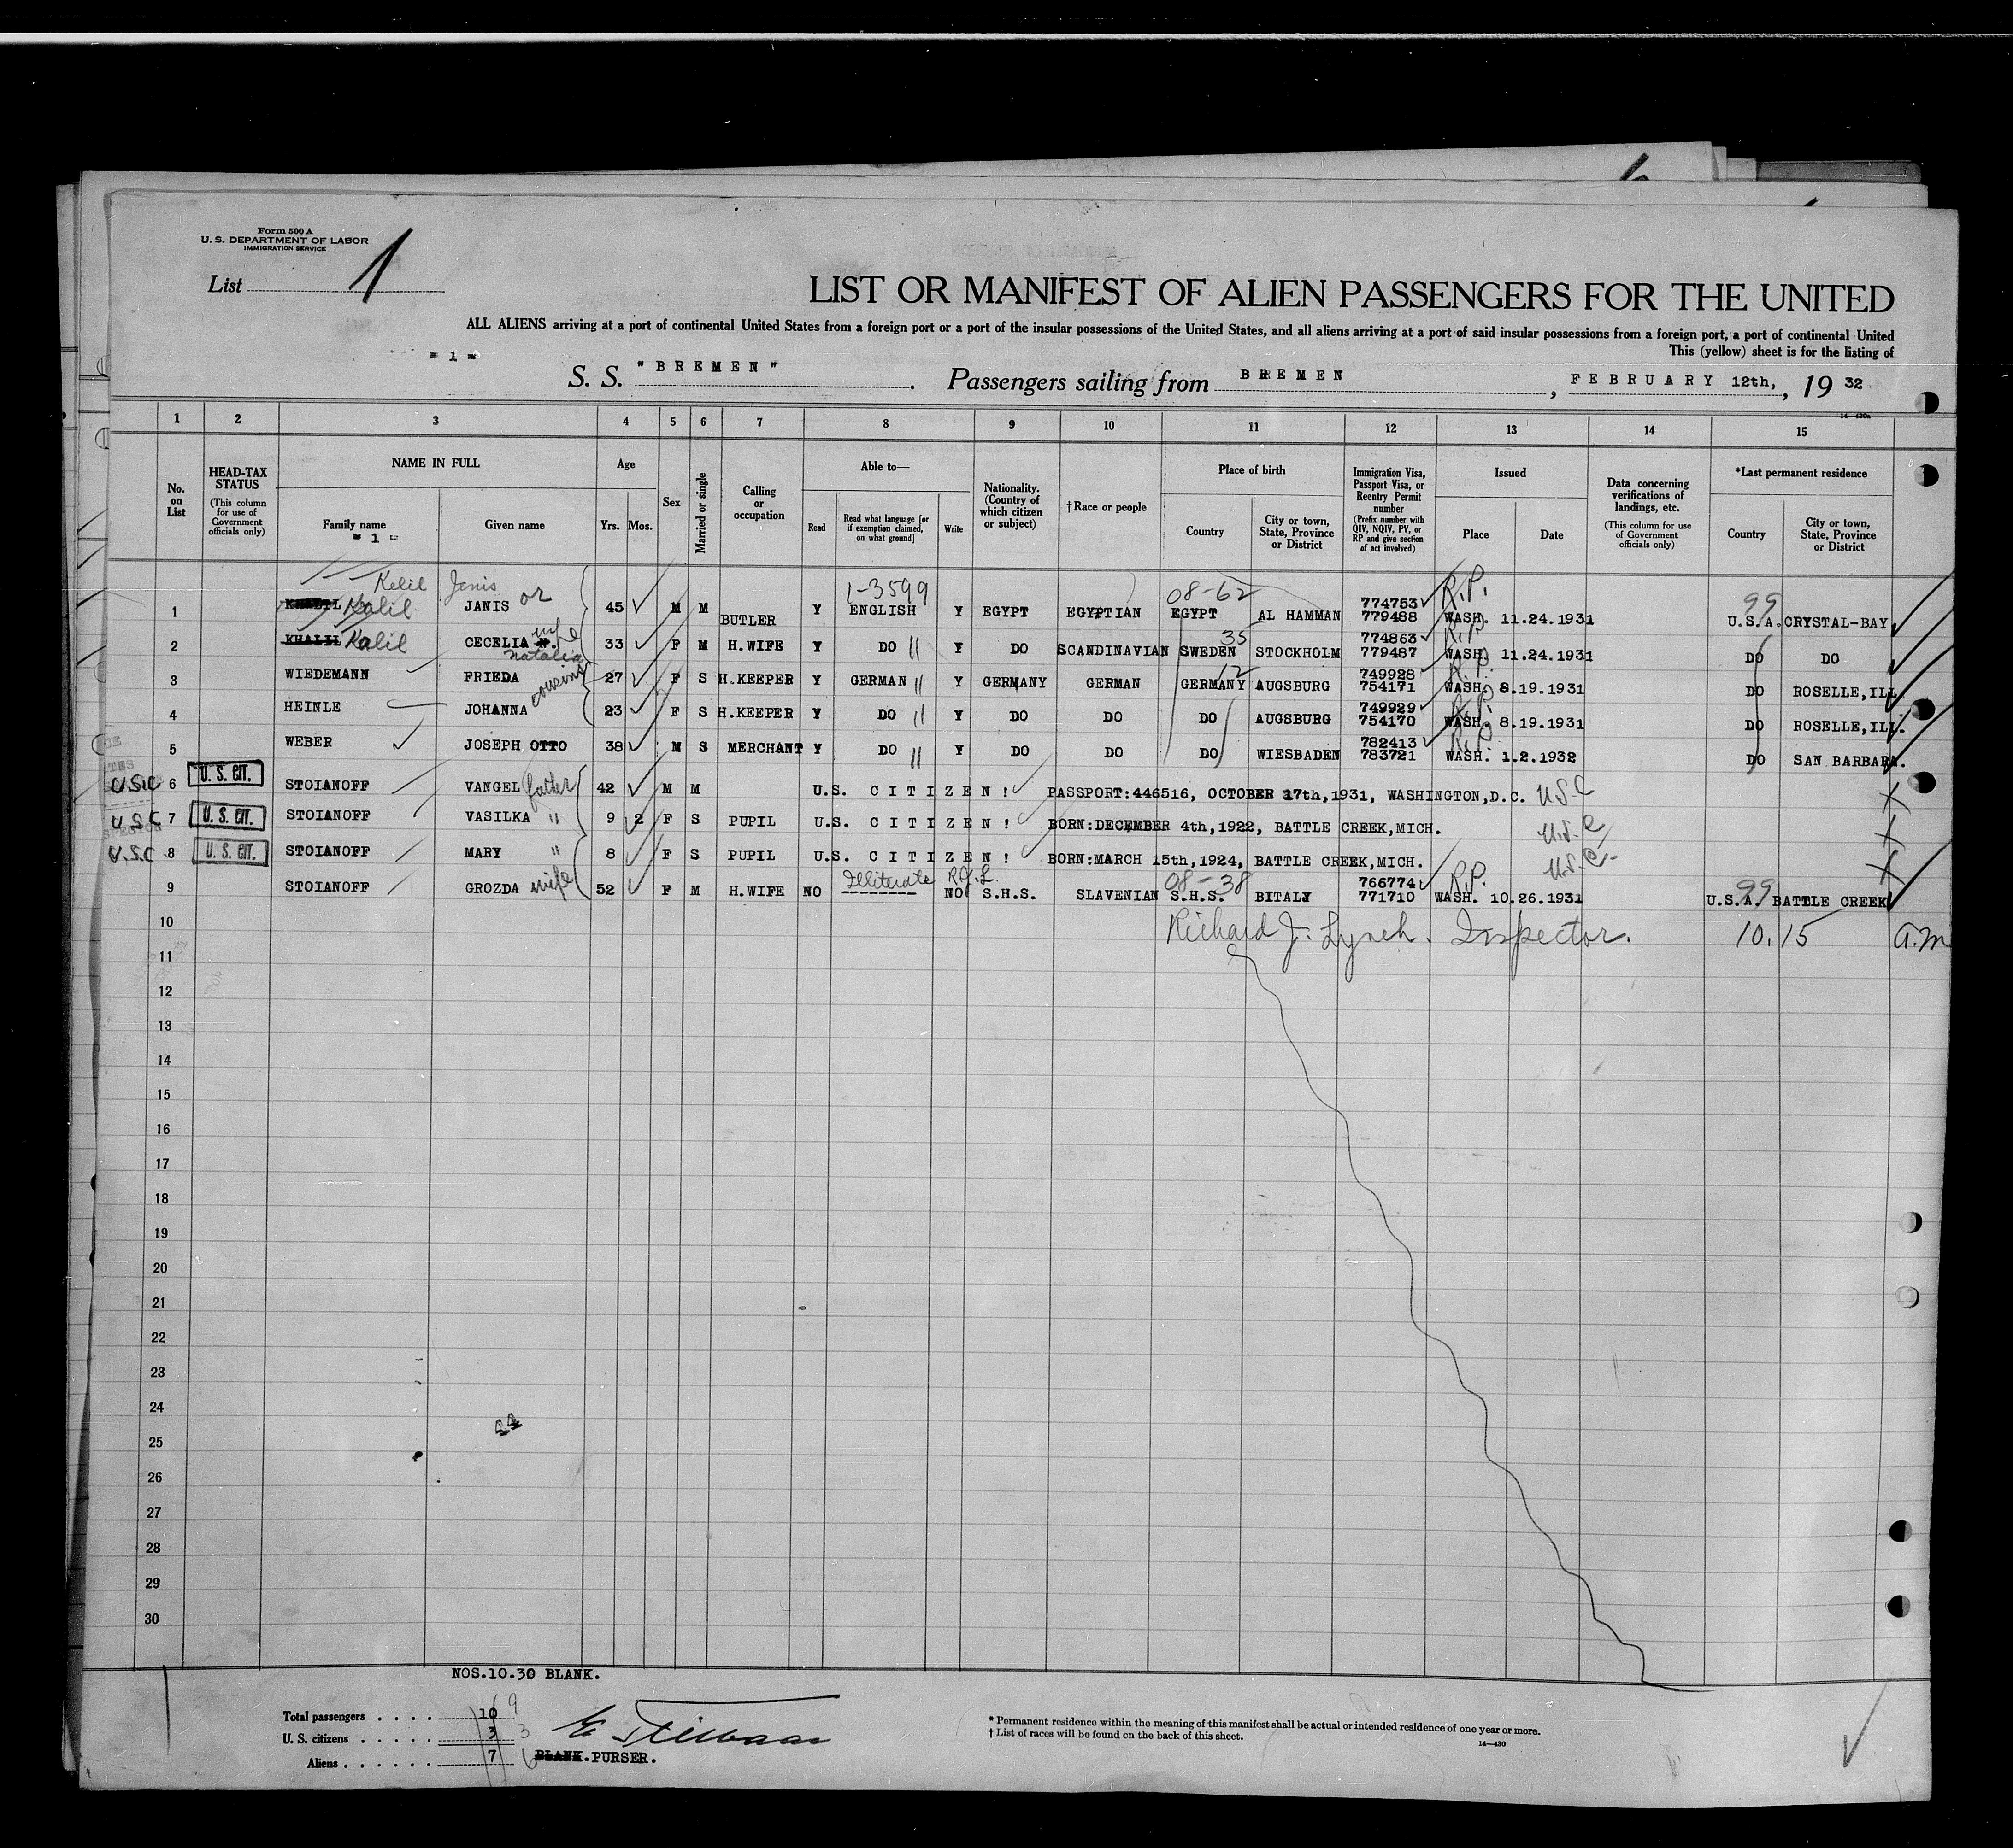 Form 500 A
U. S. DEPARTMENT OF LABOR
IMMIGRATION SERVICE
List 1
LIST OR MANIFEST OF ALIEN PASSENGERS FOR THE UNITED
ALL ALIENS arriving at a port of continental United States from a foreign port or a port of the insular possessions of the United States, and all aliens arriving at a port of said insular possessions from a foreign port, a port of continental United
This (yellow) sheet is for the listing of
- 1 -
S. S. "BREMEN". Passengers sailing from BREMEN, FEBRUARY 12th, 19 32
14—430a
1 2 3 4 5 6 7 8 9 10 11 12 13 14 15
No. on List
HEAD-TAX STATUS (This column for use of Government officials only)
NAME IN FULL
Family name
- 1 -
Given name
Age
Yrs. Mos.
Sex
Married or single
Calling or occupation
Able to—
Read
Read what language [or if exemption claimed, on what ground]
Write
Nationality. (Country of which citizen or subject)
†Race or people
Place of birth
Country
City or town, State, Province or District
Immigration Visa, Passport Visa, or Reentry Permit number (Prefix number with QIV, NQIV, PV, or RP and give section of act involved)
Issued
Place
Date
Data concerning verifications of landings, etc. (This column for use of Government officials only)
*Last permanent residence
Country
City or town, State, Province or District
Kelil Janis 1-3599 08-62 R.P. 99
1 KHALIL Kalil JANIS or 45 M M BUTLER Y ENGLISH Y EGYPT EGYPTIAN EGYPT AL HAMMAN 774753 779488 WASH. 11.24.1931 U.S.A. CRYSTAL-BAY
2 KHALIL Kalil CECELIA N. wife 33 F M H.WIFE Y DO " Y DO SCANDINAVIAN SWEDEN 35 STOCKHOLM 774863 779487 R.P. WASH. 11.24.1931 DO DO
Natalia
3 WIEDEMANN FRIEDA cousins 27 F S H.KEEPER Y GERMAN " Y GERMANY GERMAN GERMANY 12 AUGSBURG 749928 754171 R.P. WASH. 8.19.1931 DO ROSELLE,ILL.
4 HEINLE JOHANNA 23 F S H.KEEPER Y DO " Y DO DO DO AUGSBURG 749929 754170 R.P. WASH. 8.19.1931 DO ROSELLE,ILL.
5 WEBER JOSEPH OTTO 38 M S MERCHANT Y DO " Y DO DO DO WIESBADEN 782413 783721 R.P. WASH. 1.2.1932 DO SAN BARBARA.
USC 6 U. S. CIT. STOIANOFF VANGEL father 42 M M U.S. CITIZEN! PASSPORT:446516, OCTOBER 17th,1931, WASHINGTON,D.C. USC
U.S.C 7 U. S. CIT. STOIANOFF VASILKA " 9 2 F S PUPIL U.S. CITIZEN! BORN:DECEMBER 4th,1922, BATTLE CREEK,MICH. U.S.C
U.S.C 8 U. S. CIT. STOIANOFF MARY " 8 F S PUPIL U.S. CITIZEN! BORN:MARCH 15th,1924, BATTLE CREEK,MICH. U.S.C.
Illiterate R.J.L. 08-38 R.P. 99
9 STOIANOFF GROZDA wife 52 F M H.WIFE NO -------- NO S.H.S. SLAVENIAN S.H.S. BITALY 766774 771710 WASH. 10.26.1931 U.S.A. BATTLE CREEK
10 Richard J. Lynch. Inspector. 10.15 a.m
11
12
13
14
15
16
17
18
19
20
21
22
23
24
25
26
27
28
29
30
NOS.10.30 BLANK.
Total passengers . . . . 10 9
U. S. citizens . . . . . 3 3
Aliens . . . . . . 7 6
BLANK. PURSER.
* Permanent residence within the meaning of this manifest shall be actual or intended residence of one year or more.
† List of races will be found on the back of this sheet.
14—430